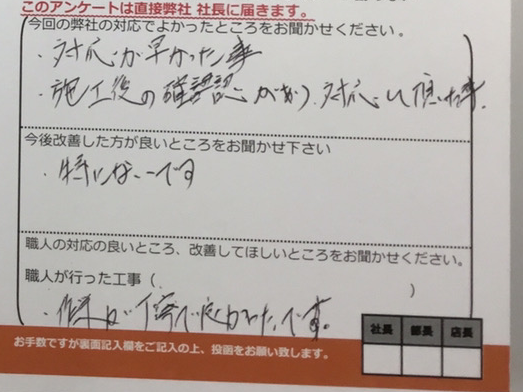 このアンケートは直接弊社 社長に届きます。
今回の弊社の対応でよかったところをお聞かせください。
・対応が早かった事
・施工後の確認があり、対応して頂けた事。
今後改善した方が良いところをお聞かせ下さい
・特にないです
職人の対応の良いところ、改善してほしいところをお聞かせください。
職人が行った工事（ ）
・作業が丁寧で良かったです。
社長 部長 店長
お手数ですが裏面記入欄をご記入の上、投函をお願い致します。